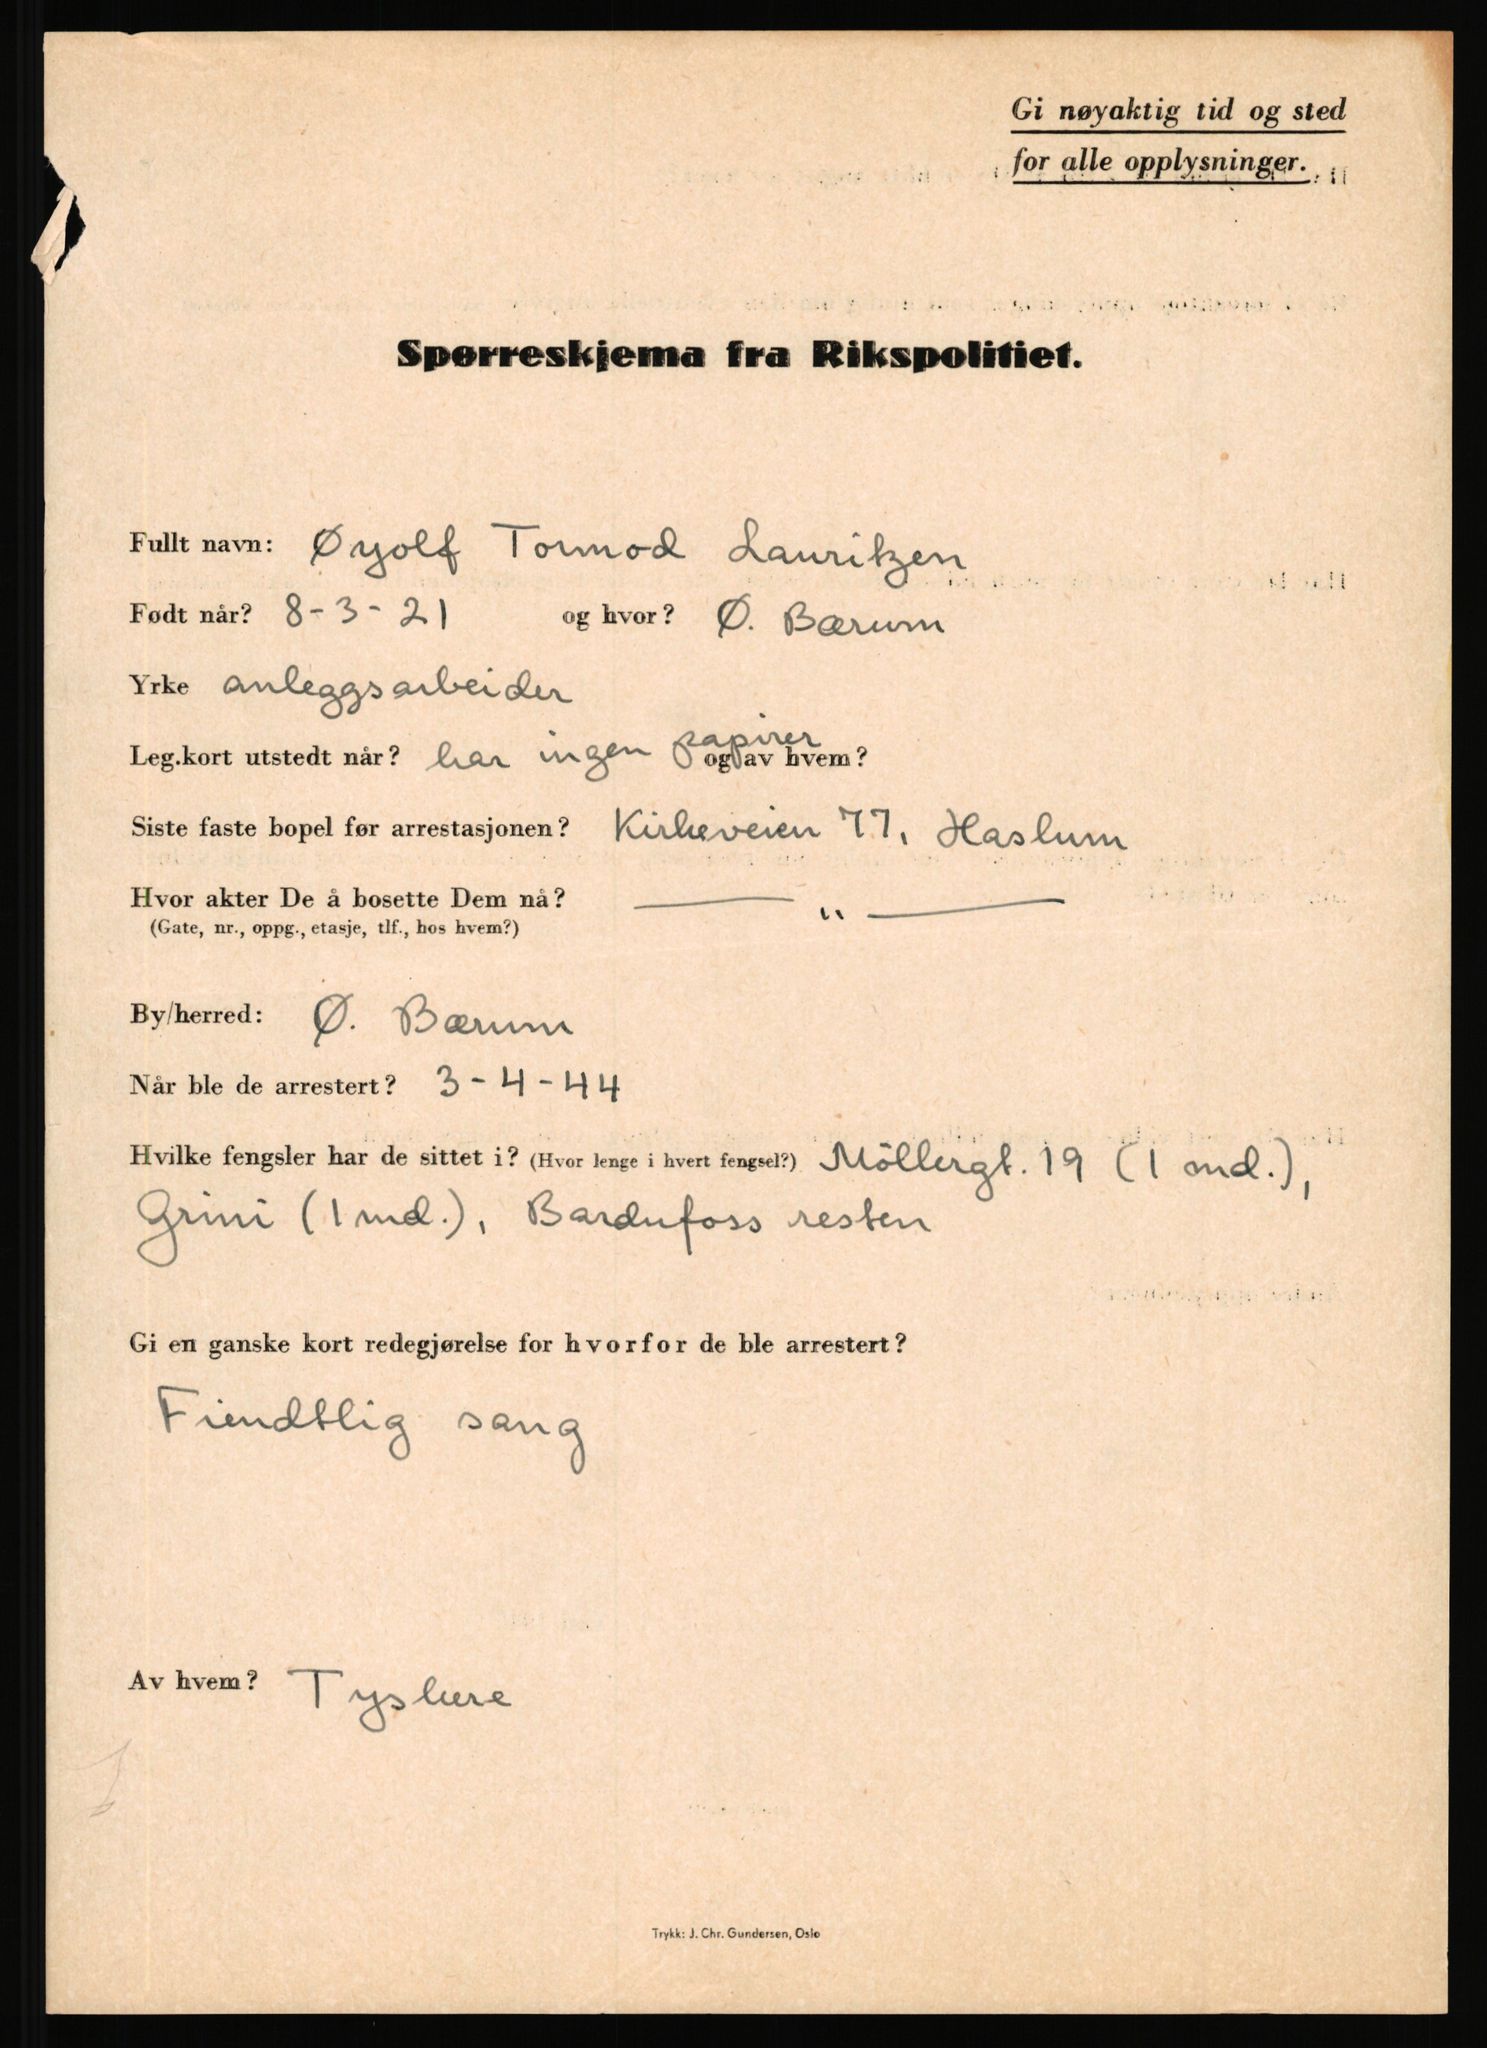 Gi nøyaktig tid og sted
for alle opplysninger.
Spørreskjema fra Rikspolitiet.
Fullt navn: Øyolf Tormod Lauritzen
Født når? 8-3-21 og hvor? Ø. Bærum
Yrke anleggsarbeider
Leg.kort utstedt når? har ingen papirer og av hvem?
Siste faste bopel før arrestasjonen? Kirkeveien 77, Haslum
Hvor akter De å bosette Dem nå? — " —
(Gate, nr., oppg., etasje, tlf., hos hvem?)
By/herred: Ø. Bærum
Når ble de arrestert? 3-4-44
Hvilke fengsler har de sittet i? (Hvor lenge i hvert fengsel?) Möllergt. 19 (1 md.),
Grini (1 md.), Bardufoss resten
Gi en ganske kort redegjørelse for hvorfor de ble arrestert?
Fiendtlig sang
Av hvem? Tyskere
Trykk: J. Chr. Gundersen, Oslo